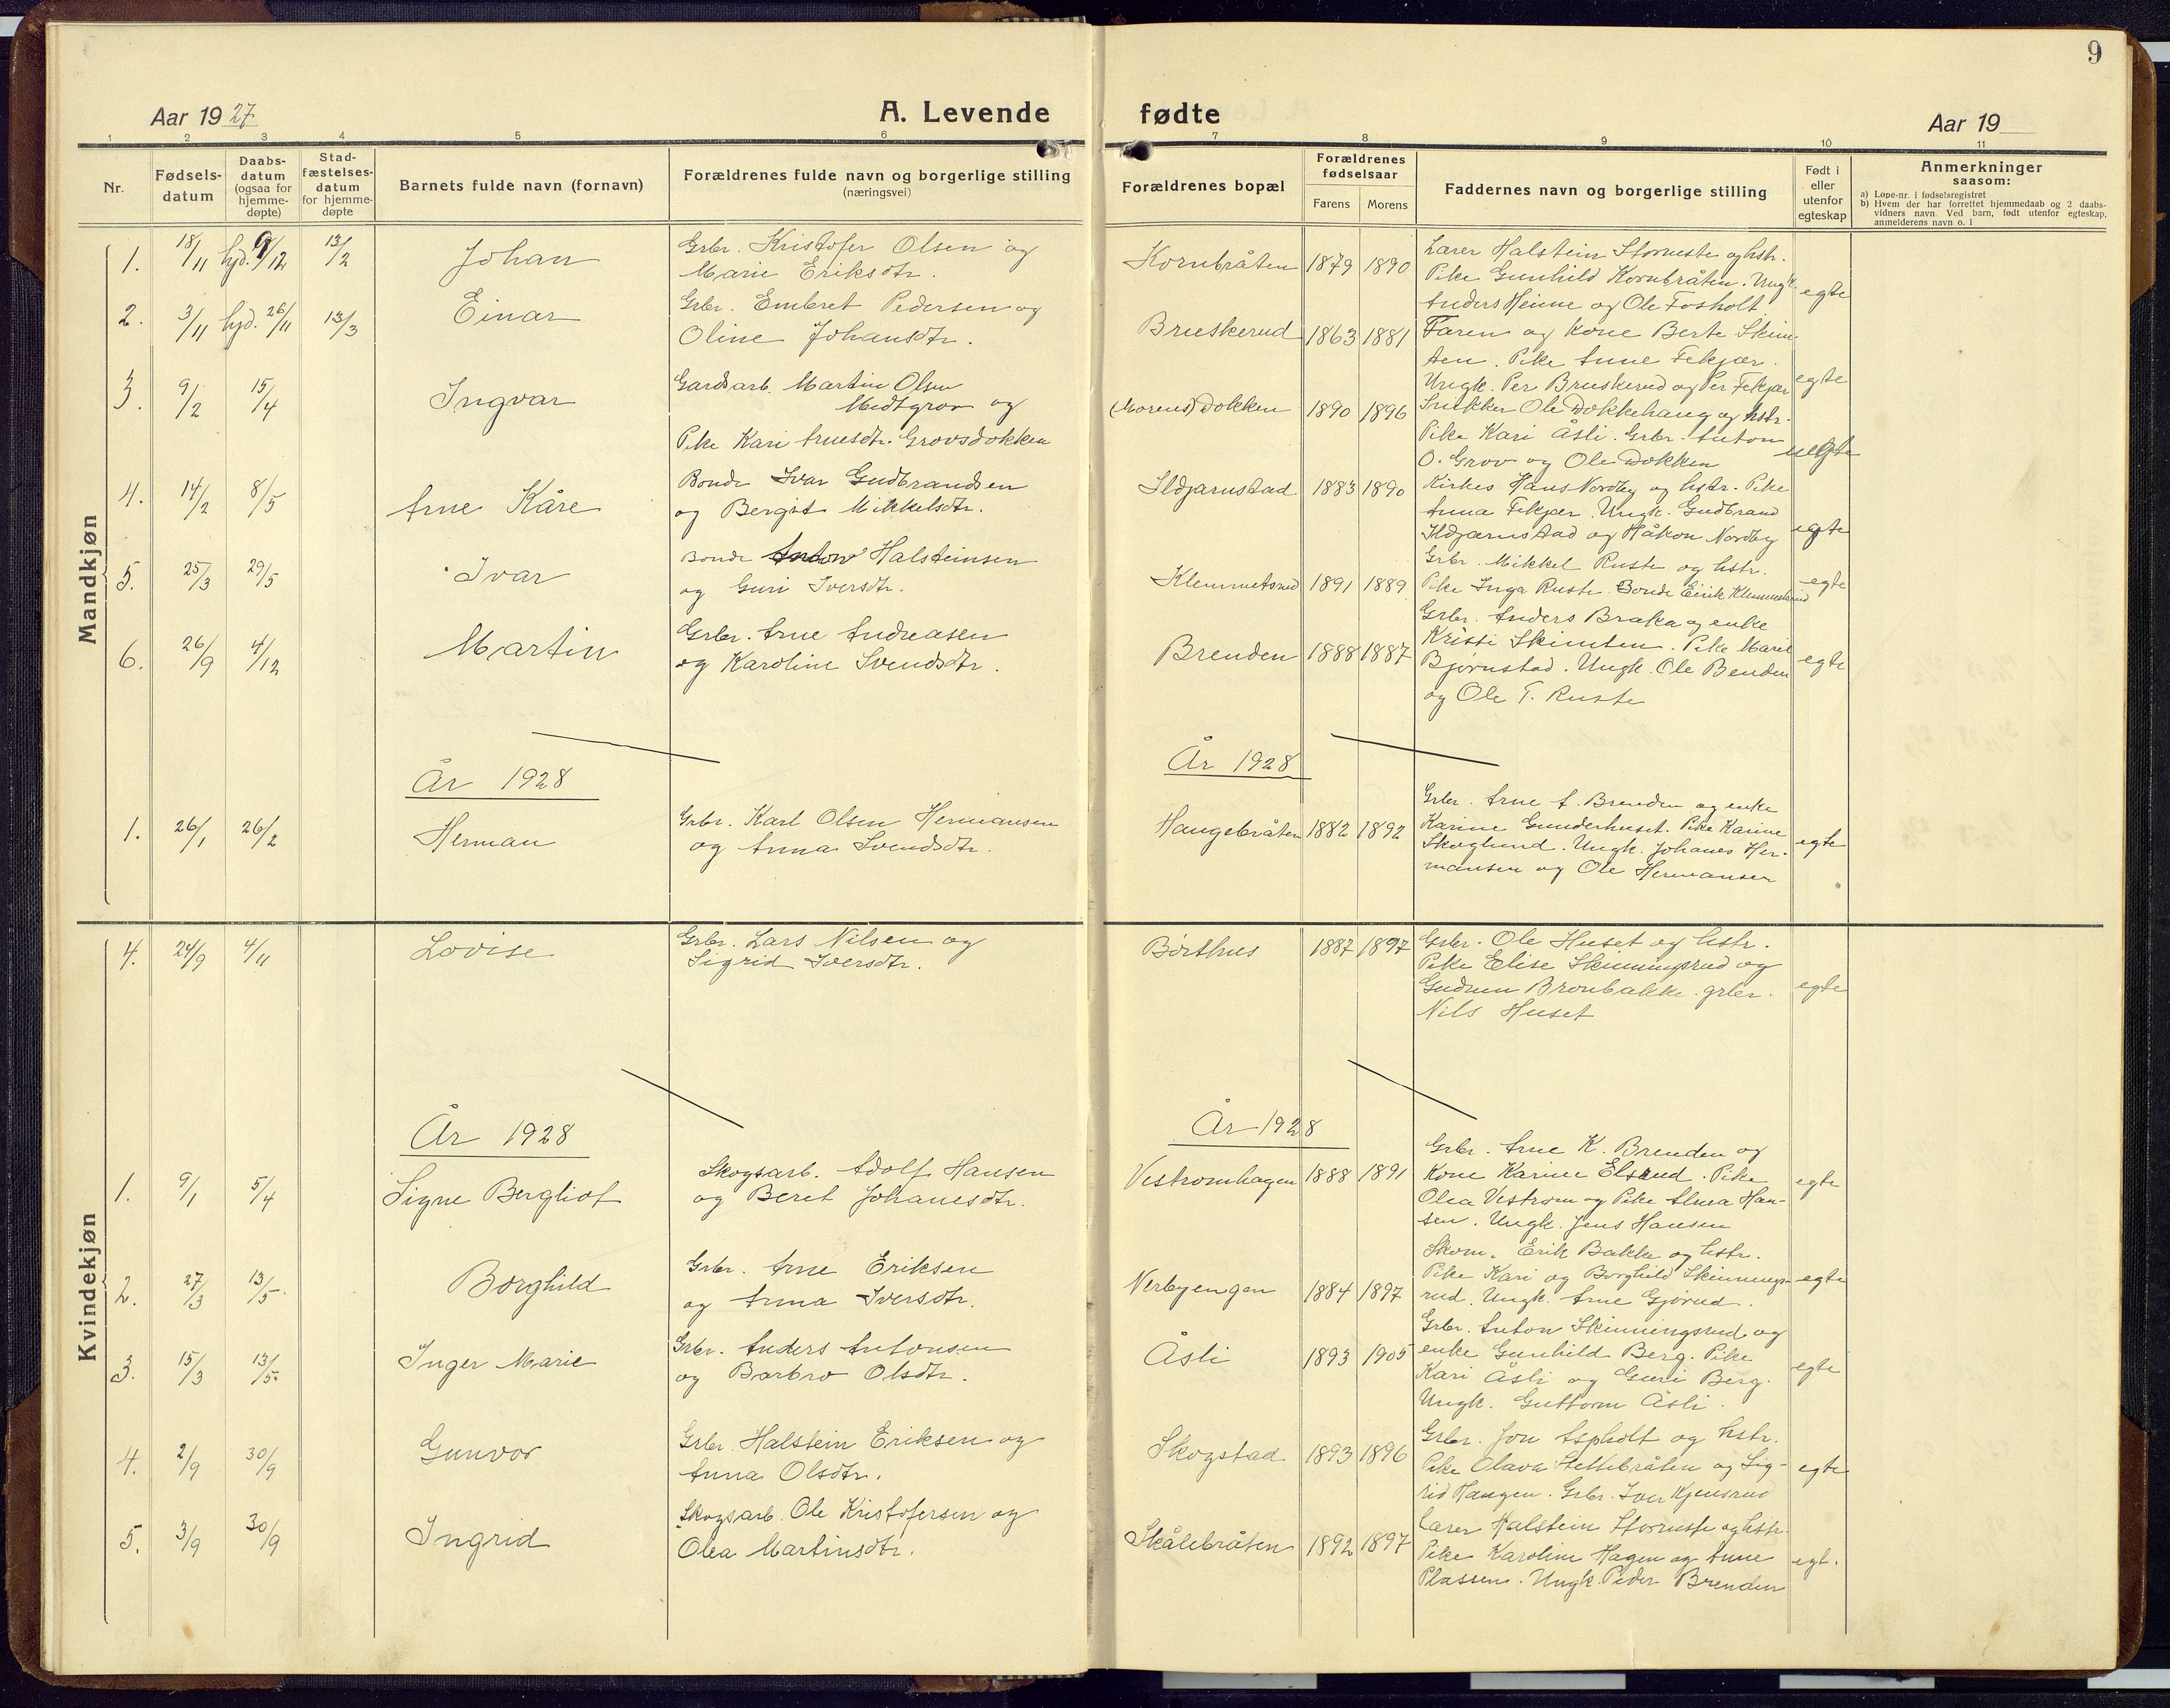 9
Aar 1927
A. Levende
fødte
Aar 19
1 2 3 4 5 6 7 8 9 10 11
Nr.
Fødsels-
datum
Daabs-
datum
(ogsaa for
hjemme-
døpte)
Stad-
fæstelses-
datum
for hjemme-
døpte
Barnets fulde navn (fornavn)
Forældrenes fulde navn og borgerlige stilling
(næringsvei)
Forældrenes bopæl
Forældrenes
fødselsaar
Farens Morens
Faddernes navn og borgerlige stilling
Født i
eller
utenfor
egteskap
Anmerkninger
saasom:
a) Løpe-nr. i fødselsregistret
b) Hvem der har forrettet hjemmedaab og 2 daabs-
vidners navn. Ved barn, født utenfor egteskap,
anmelderens navn o. l
Mandkjøn
1. 18/11 hjd. 9/12 13/2 Johan
Grbr. Kristofer Olsen og
Marie Eriksdtr.
Kornbråten 1879 1890
Lærer Halstein Storruste og hstr.
Pike Gunhild Kornbråten. Ungk.
Anders Heime og Ole Fosholt
egte
2. 3/11 hjd. 26/11 13/3 Einar
Grbr. Embret Pedersen og
Oline Johansdtr.
Bruskerud 1863 1881
Faren og kone Berte Skim-
ten. Pike Anne Fekjær.
Ungk. Per Bruskerud og Per Fekjær
egte
3. 9/2 15/4 Ingvar
Gardsarb. Martin Olsen
Medtgrov og
Pike Kari Arnesdtr. Grovsdokken
(Morens) Dokken 1890 1896
Snekker Ole Dokkehaug og hstr.
Pike Kari Åsli. Grbr. Anton
O. Grov og Ole Dokken
uegte
4. 14/2 8/5 Arne Kåre
Bonde Ivar Gudbrandsen
og Bergit Mikkelsdtr.
Ildjarnstad 1883 1890
Kirkes. Hans Nordby og hstr. Pike
Anna Fekjær. Ungk. Gudbrand
Ildjarnstad og Håkon Nordby
egte
5. 25/3 29/5 Ivar
Bonde Anton Halsteinsen
og Guri Iversdtr.
Klemmetsrud 1891 1889
Grbr. Mikkel Ruste og hstr.
Pike Inga Ruste. Bonde Eirik Klemmetsrud
egte
6. 26/9 4/12 Martin
Grbr. Arne Andreasen
og Karoline Svendsdtr.
Brenden 1888 1887
Grbr. Anders Braka og enke
Kristi Skimten. Pike Marie
Bjørnstad. Ungk. Ole Benden
og Ole T. Ruste
egte
År 1928
År 1928
1. 26/1 26/2 Herman
Grbr. Karl Olsen Hermansen
og Anna Svendsdtr.
Haugebråten 1882 1892
Grbr. Arne A. Brenden og enke
Karine Gunderhuset. Pike Karine
Skoglund. Ungk. Johanes Her-
mansen og Ole Hermansen
egte
Kvindekjøn
4. 24/9 4/11 Lovise
Grbr. Lars Nilsen og
Sigrid Iversdtr.
Børthus 1887 1897
Grbr. Ole Huset og hstr.
Pike Elise Skinningsrud og
Gudrun Bronbakke. grbr.
Nils Huset
egte
År 1928
År 1928
1. 9/1 5/4 Signe Bergliot
Skogsarb. Adolf Hansen
og Beret Johanesdtr.
Vestromhagen 1888 1891
Grbr. Arne K. Brenden og
Kone Karine Elsrud. Pike
Olea Vestrom og Pike Alma Han-
sen. Ungk. Jens Hansen
egte
2. 27/3 13/5. Borghild
Grbr. Arne Eriksen
og Anna Iversdtr.
Nerbyengen 1884 1897
Skom. Erik Bakke og hstr.
Pike Kari og Borghild Skinnings-
rud. Ungk. Arne Gjørud.
egte
3. 15/3 13/5. Inger Marie
Grbr. Anders Antonsen
og Barbro Olsdtr.
Åsli 1893 1905
Grbr. Anton Skinningsrud og
enke Gunhild Berg. Pike
Kari Åsli og Guri Berg.
Ungk. Guttorm Åsli.
egte
4. 2/9 30/9 Gunvor
Grbr. Halstein Eriksen og
Anna Olsdtr.
Skogstad 1893 1896
Grbr. Jon Aspholt og hstr.
Pike Olava Hellebråten og Sig-
rid Haugen. Grbr. Iver Kjensrud
egte
5. 3/9 30/9 Ingrid
Skogsarb. Ole Kristofersen og
Olea Martinsdtr.
Skålebråten 1892 1897
Lærer Halstein Storruste og hstr.
Pike Karoline Hagen og Anne
Plassen. Ungk. Peder Brenden
egt.